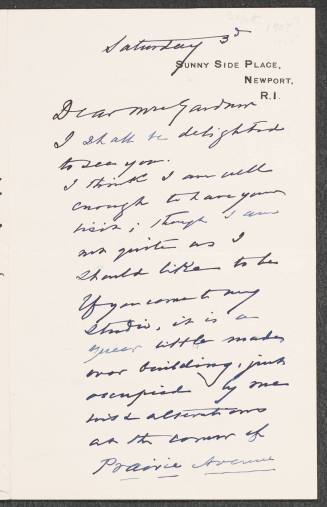 Saturday 3d
SUNNY SIDE PLACE,
NEWPORT,
R.I.
Dear Mrs Gardner
I shall be delighted
to see you.
I think I am well
enough to have your
visit; though I am
not quite as I
should like to be
If you come to my
studio, it is a
queer little made
over building, just
occupied by me
with alterations
at the corner of
Prairie Avenue